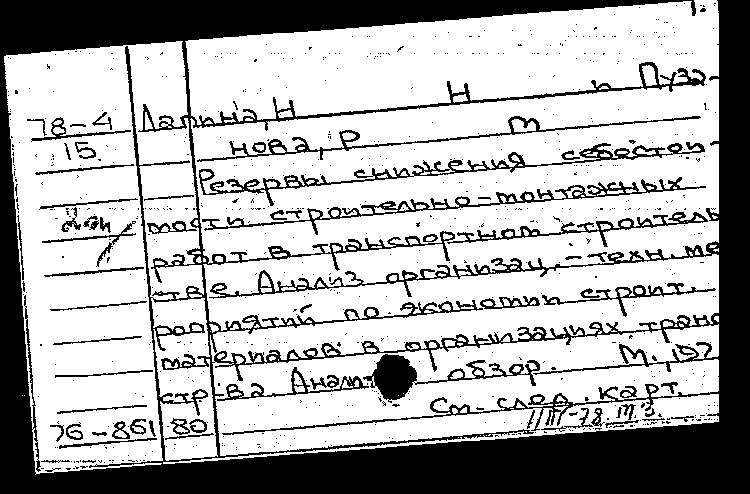 78-4 Лапина, Н Н и Пуза-
15 нова, Р М
Резервы снижения себестои-
мости строительно-монтажных
работ в транспортном строитель
стве. Анализ организац.-техн. ме
роприятий по экономии строит.
материалов в организациях транс
стр-ва. Анали обзор. М., 197
См. след. карт.
76-861 80